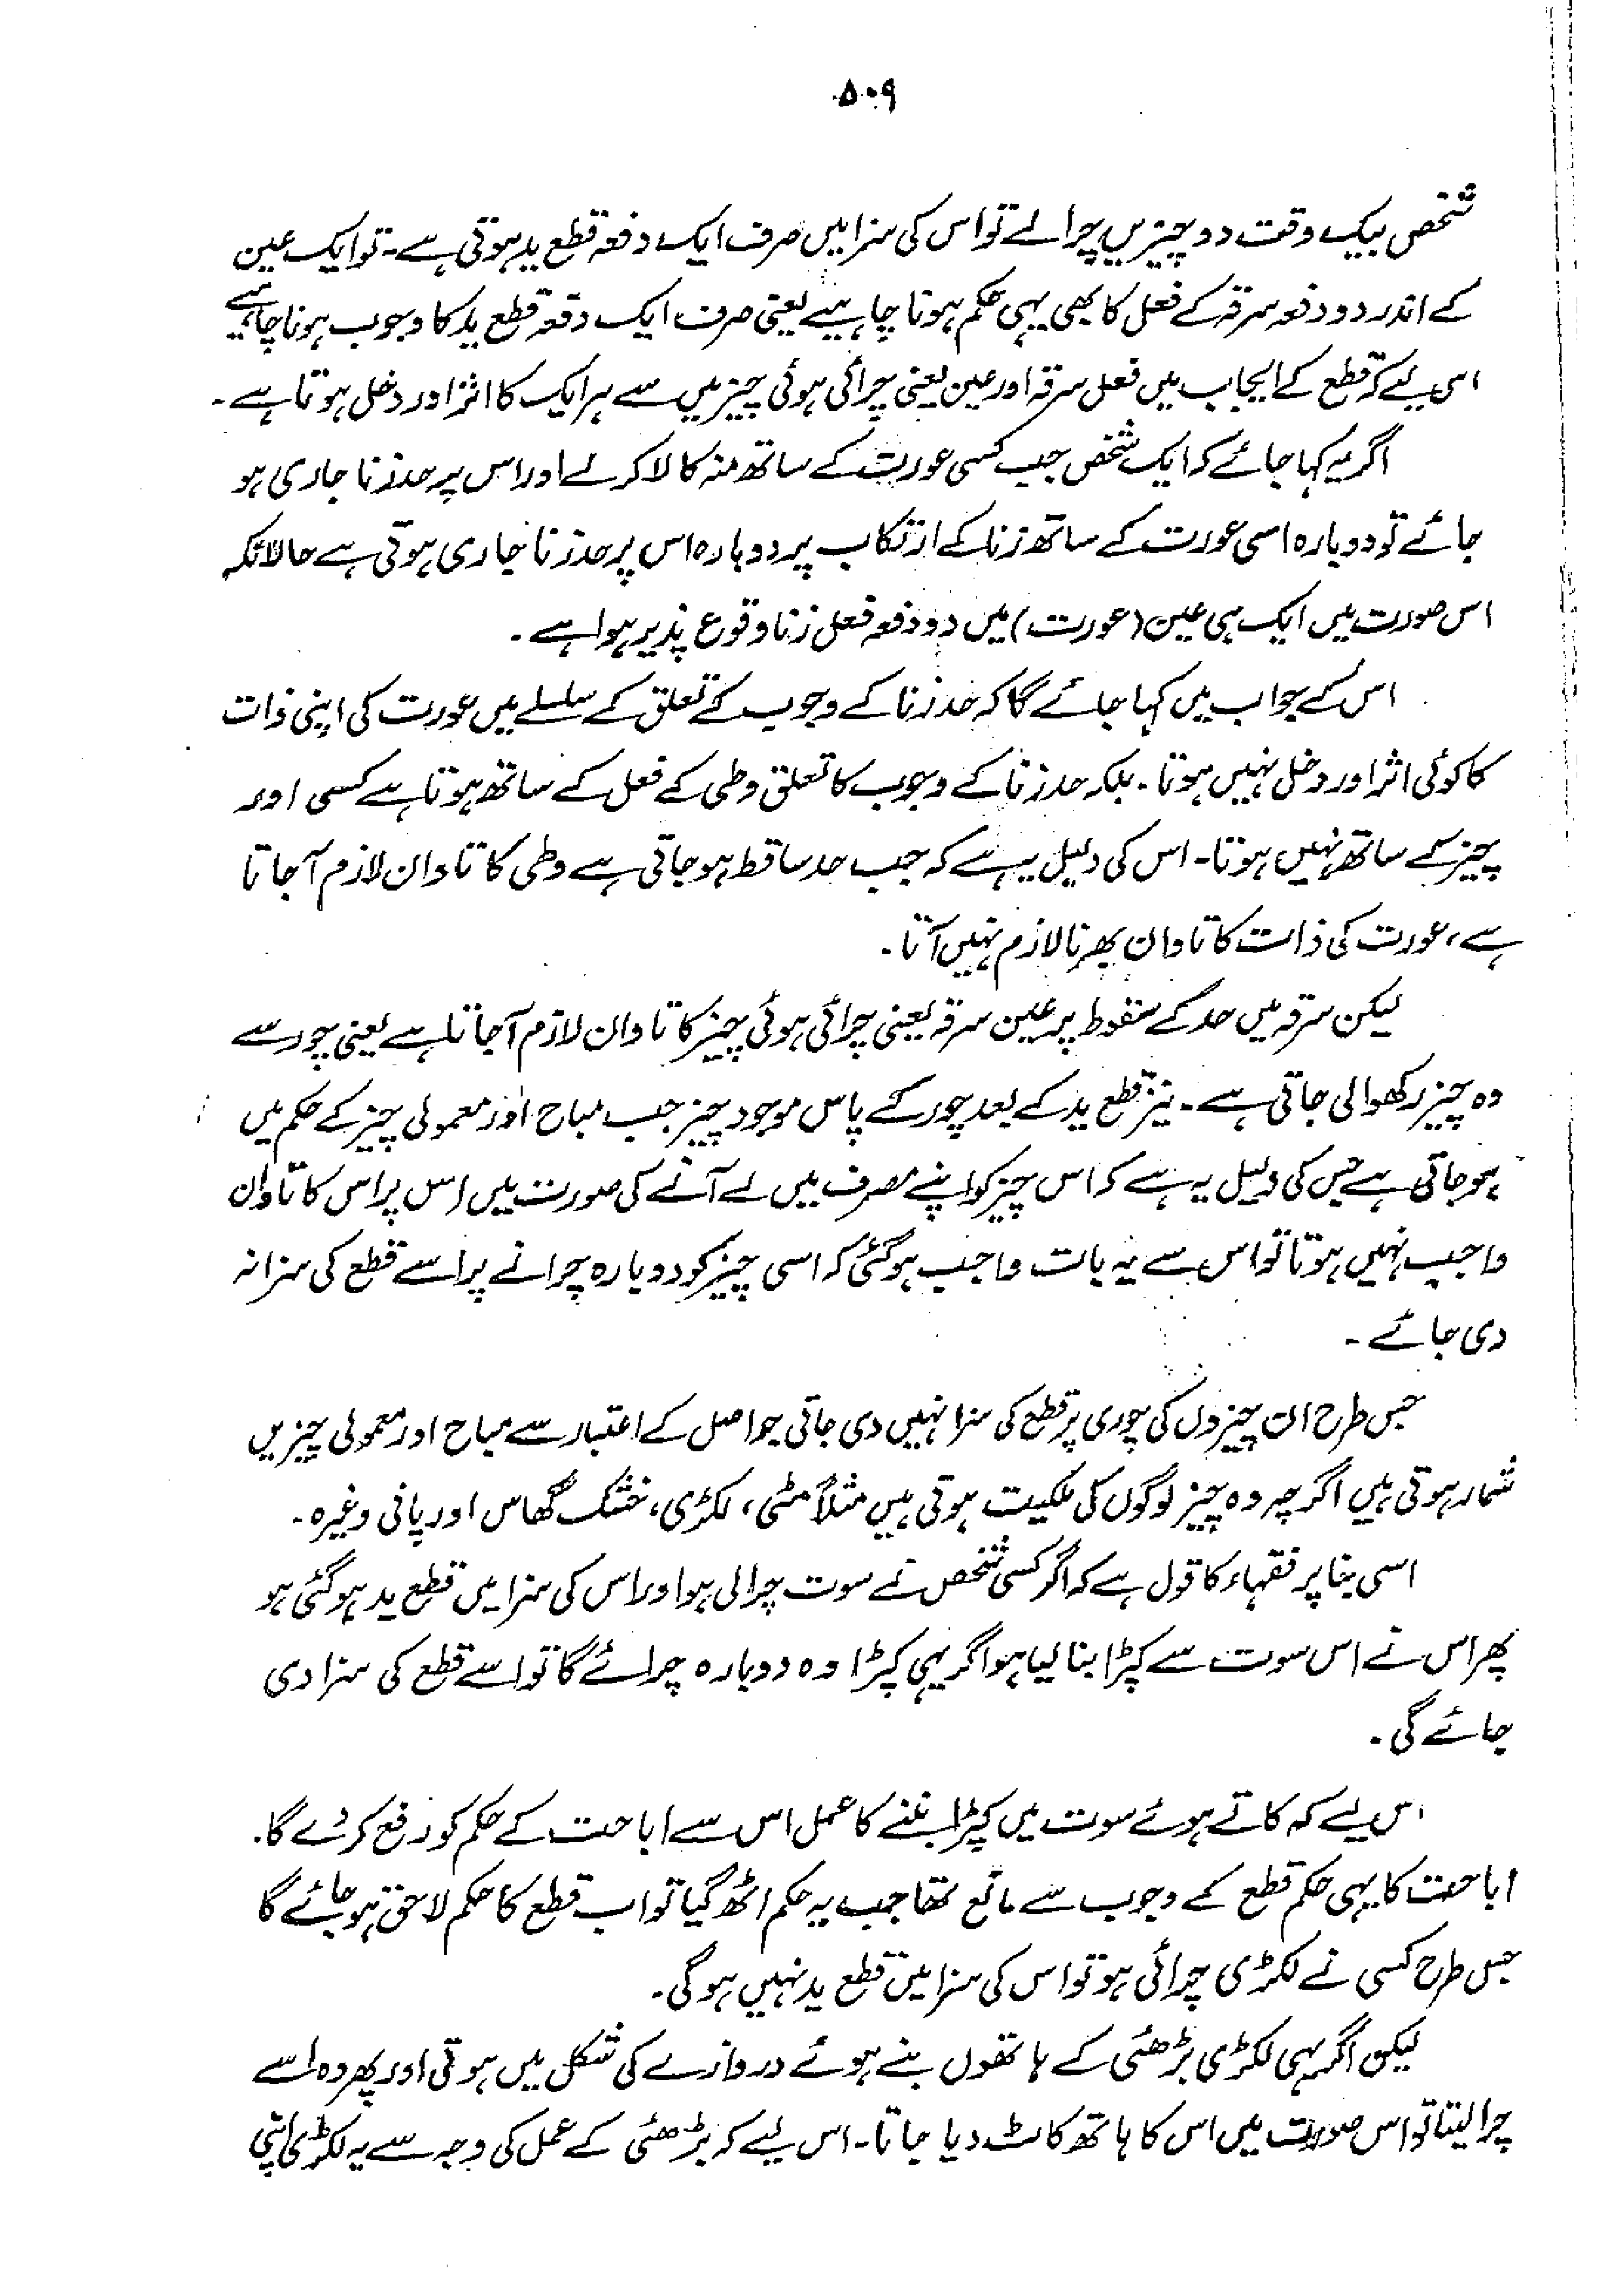 ۵۰۹
شخص بیک وقت دو چیزیں چرا لے تو اس کی سزا میں صرف ایک دفعہ قطع ید ہوتی ہے۔ تو ایک عین
کے اندر دو دفعہ سرقہ کے فعل کا بھی یہی حکم ہونا چاہیے یعنی صرف ایک دفعہ قطع ید کا وجوب ہونا چاہیے
اس لیے کہ قطع کے ایجاب میں فعل سرقہ اور عین یعنی چرائی ہوئی چیز میں سے ہر ایک کا اثر اور دخل ہوتا ہے۔
اگر یہ کہا جائے کہ ایک شخص جب کسی عورت کے ساتھ منہ کالا کرلے اور اس پر حد زنا جاری ہو
جائے تو دوبارہ اسی عورت کے ساتھ زنا کے ارتکاب پر دوبارہ اس پر حد زنا جاری ہوتی ہے حالانکہ
اس صورت میں ایک ہی عین (عورت) میں دو دفعہ فعل زنا وقوع پذیر ہوا ہے۔
اس کے جواب میں کہا جائے گا کہ حد زنا کے وجوب کے تعلق کے سلسلے میں عورت کی اپنی ذات
کا کوئی اثر اور دخل نہیں ہوتا۔ بلکہ حد زنا کے وجوب کا تعلق وطی کے فعل کے ساتھ ہوتا ہے کسی اور
چیز کے ساتھ نہیں ہوتا۔ اس کی دلیل یہ ہے کہ جب حد ساقط ہو جاتی ہے وطی کا تاوان لازم آ جاتا
ہے، عورت کی ذات کا تاوان بھرنا لازم نہیں آتا۔
لیکن سرقہ میں حد کے سقوط پر عین سرقہ یعنی چرائی ہوئی چیز کا تاوان لازم آ جاتا ہے یعنی چور سے
وہ چیز رکھوالی جاتی ہے۔ نیز قطع ید کے بعد چور کے پاس موجود چیز جب مباح اور معمولی چیز کے حکم میں
ہو جاتی ہے جس کی دلیل یہ ہے کہ اس چیز کو اپنے مصرف میں لے آنے کی صورت میں اس پر اس کا تاوان
واجب نہیں ہوتا تو اس سے یہ بات واجب ہوگئی کہ اسی چیز کو دوبارہ چرانے پر اسے قطع کی سزا نہ
دی جائے۔
جس طرح ان چیزوں کی چوری پر قطع کی سزا نہیں دی جاتی جو اصل کے اعتبار سے مباح اور معمولی چیزیں
شمار ہوتی ہیں اگرچہ وہ چیز لوگوں کی ملکیت ہوتی ہیں مثلاً مٹی، لکڑی، خشک گھاس اور پانی وغیرہ۔
اسی بنا پر فقہاء کا قول ہے کہ اگر کسی شخص نے سوت چرا لی ہو اور اس کی سزا میں قطع ید ہو گئی ہو
پھر اس نے اس سوت سے کپڑا بنا لیا ہو اگر یہی کپڑا وہ دوبارہ چرائے گا تو اسے قطع کی سزا دی
جائے گی۔
اس لیے کہ کاتے ہوئے سوت میں کپڑا بننے کا عمل اس سے اباحت کے حکم کو رفع کر دے گا۔
اباحت کا یہی حکم قطع کے وجوب سے مانع تھا جب یہ حکم اٹھ گیا تو اب قطع کا حکم لاحق ہو جائے گا
جس طرح کسی نے لکڑی چرائی ہو تو اس کی سزا میں قطع ید نہیں ہوگی۔
لیکن اگر یہی لکڑی بڑھئی کے ہاتھوں بنے ہوئے دروازے کی شکل میں ہوتی اور پھر وہ اسے
چرا لیتا تو اس صورت میں اس کا ہاتھ کاٹ دیا جاتا۔ اس لیے کہ بڑھئی کے عمل کی وجہ سے یہ لکڑی اپنی